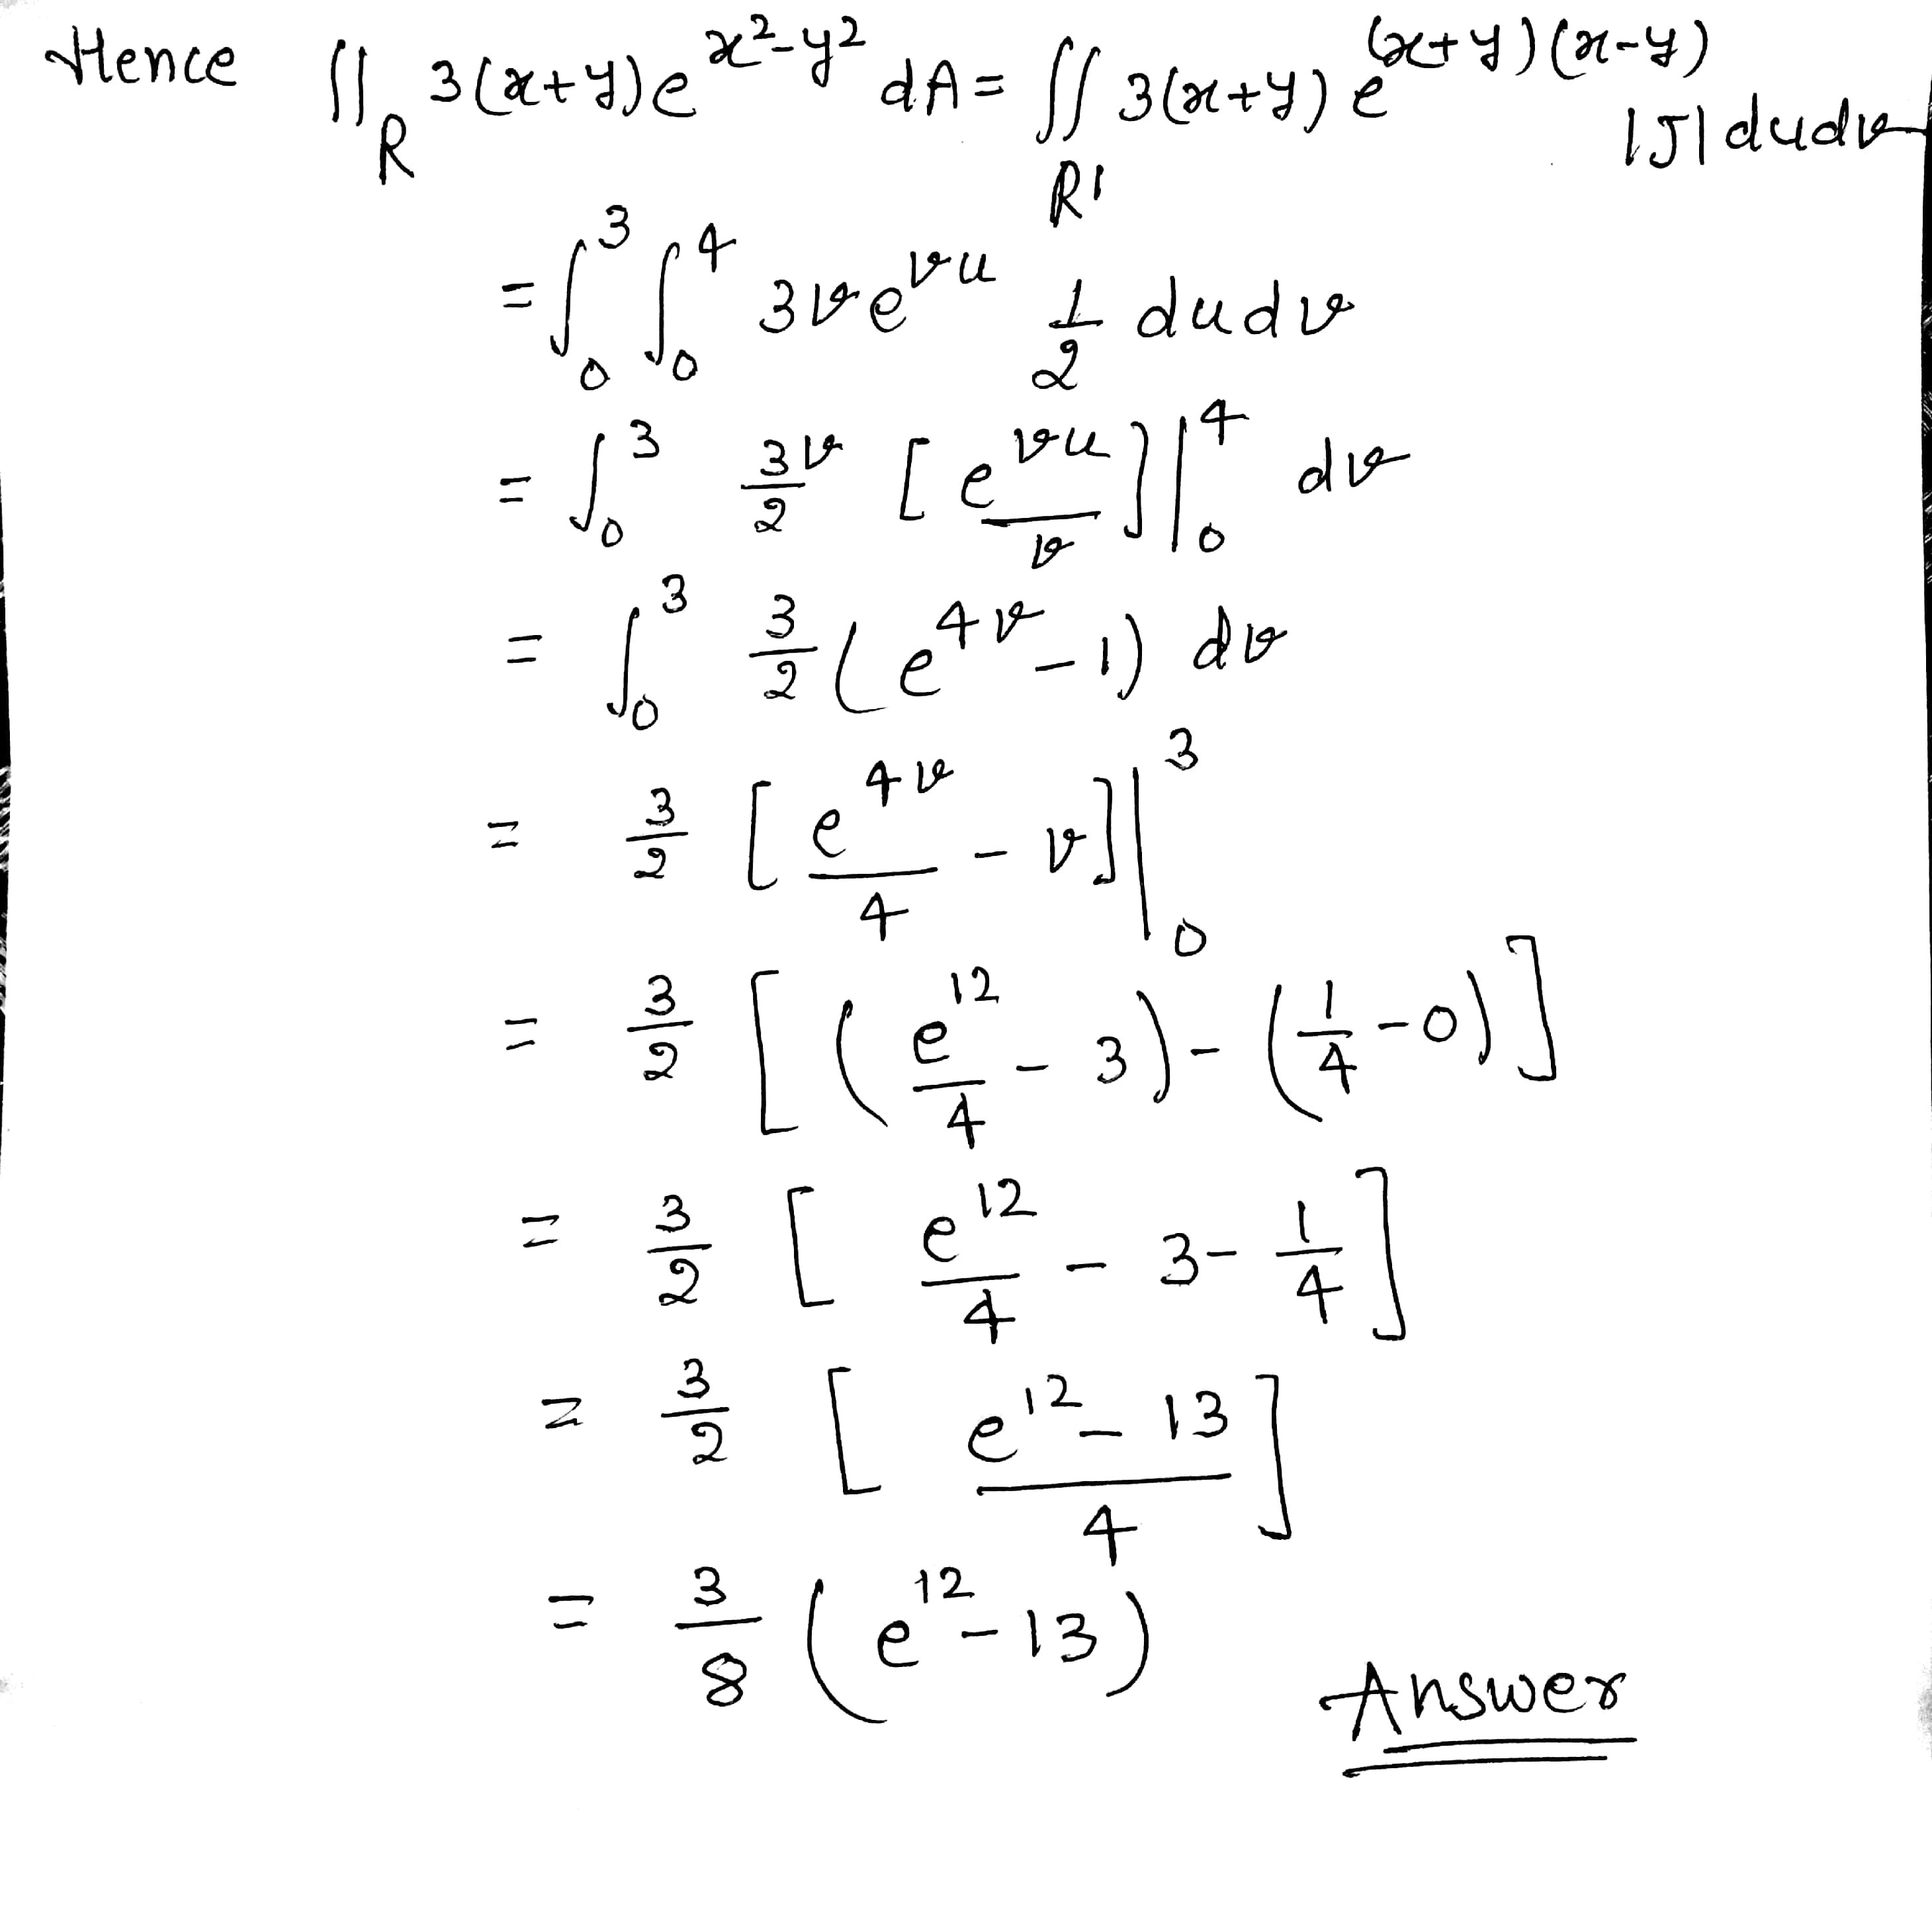 Hence ∬_R 3(x+y)e^{x²-y²} dA = ∬_{R'} 3(x+y) e^{(x+y)(x-y)} |J| du dv
= ∫_0^3 ∫_0^4 3v e^{vu} 1/2 du dv
= ∫_0^3 3v/2 [e^{vu}/v] |_0^4 dv
= ∫_0^3 3/2 (e^{4v} - 1) dv
= 3/2 [e^{4v}/4 - v] |_0^3
= 3/2 [(e^{12}/4 - 3) - (1/4 - 0)]
= 3/2 [e^{12}/4 - 3 - 1/4]
= 3/2 [(e^{12} - 13)/4]
= 3/8 (e^{12} - 13)
Answer